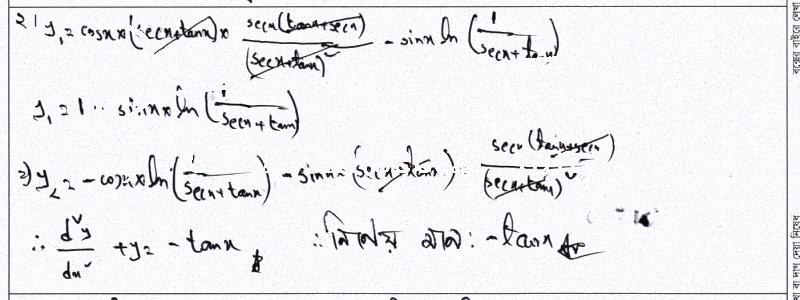 ২। y₁ = cosx × (secx+tanx) × secx(tanx+secx)/(secx+tanx)² - sinx ln(1/(secx+tanx))
y₁ = 1 - sinx × ln(1/(secx+tanx))
⇒ y₂ = -cosx × ln(1/(secx+tanx)) - sinx × (secx+tanx) secx(tanx+secx)/(secx+tanx)²
∴ d²y/dx² + y = -tanx ∴ নির্ণেয় মান: -tanx